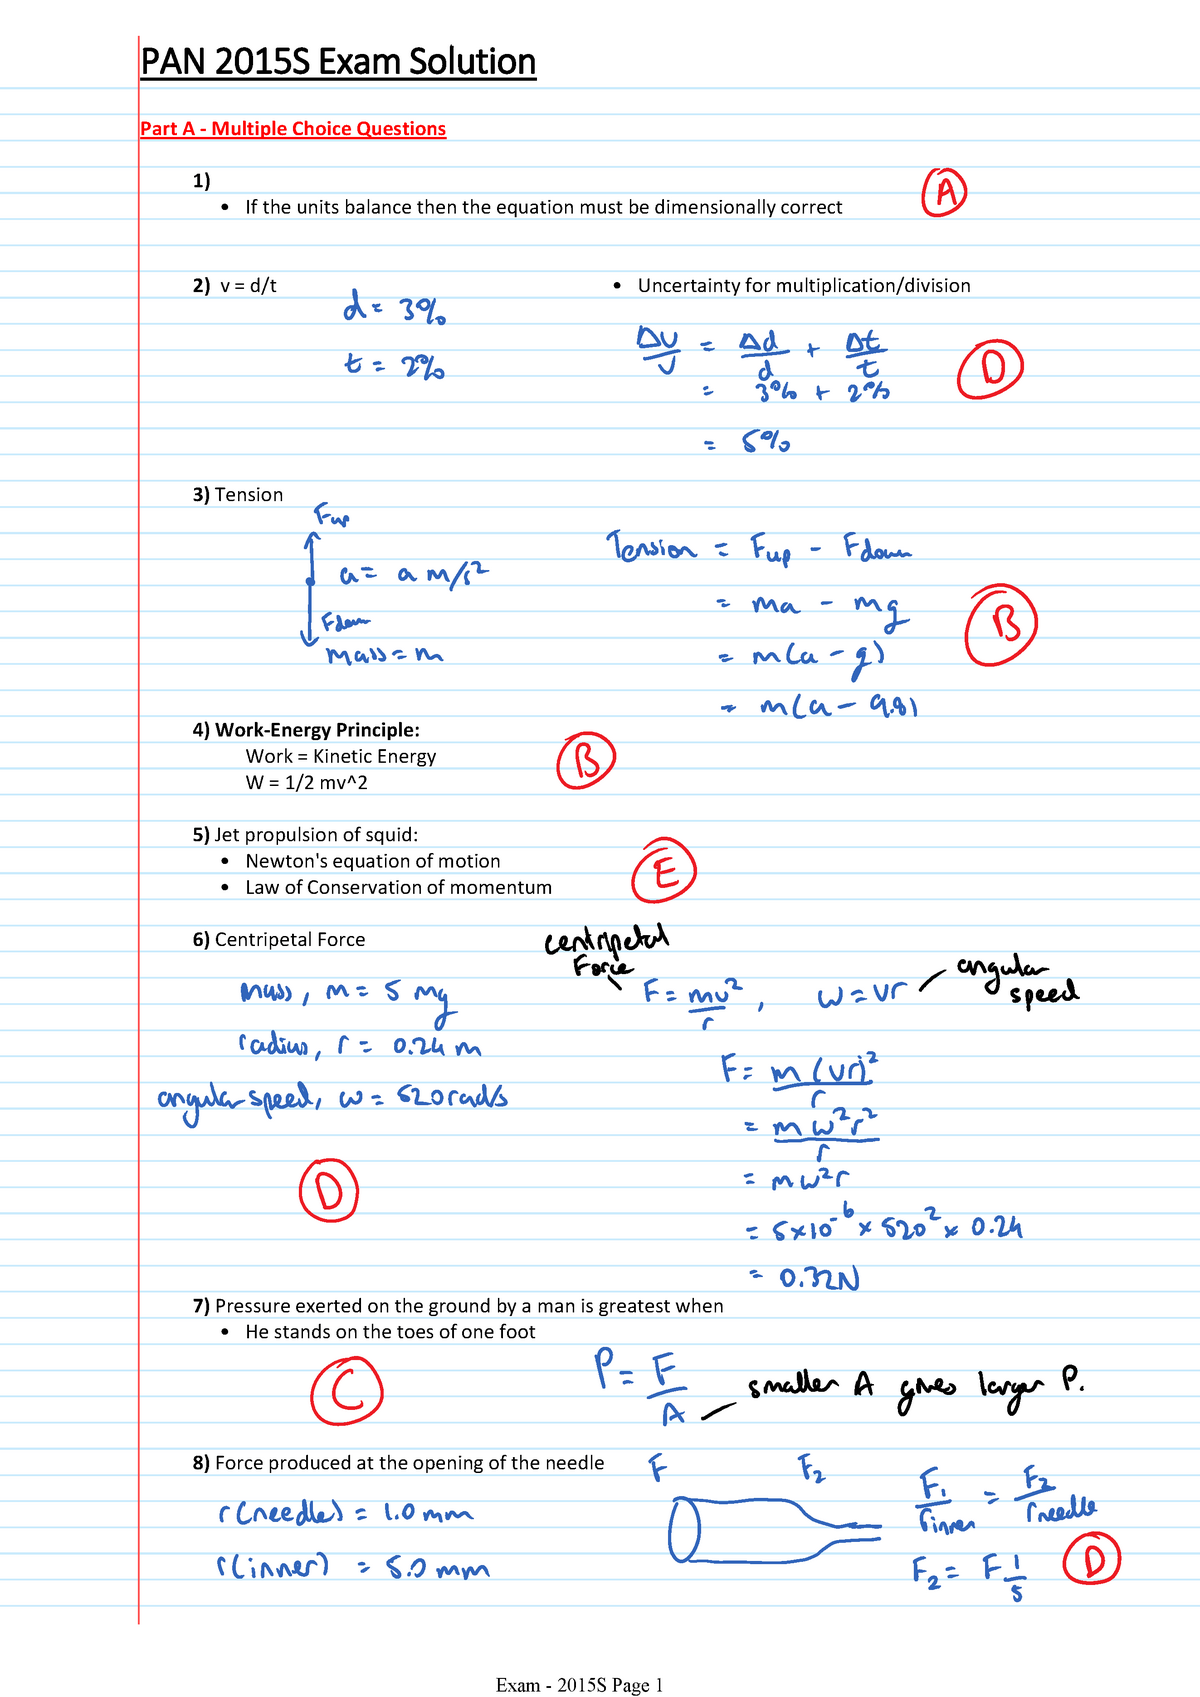 PAN 2015S Exam Solution
Part A - Multiple Choice Questions
1)
• If the units balance then the equation must be dimensionally correct
A
2) v = d/t
d = 3%
t = 2%
• Uncertainty for multiplication/division
Δv/v = Δd/d + Δt/t
= 3% + 2%
= 5%
D
3) Tension
Fup
a = a m/s²
Fdown
mass = m
Tension = Fup - Fdown
= ma - mg
= m(a - g)
= m(a - 9.81
B
4) Work-Energy Principle:
Work = Kinetic Energy
W = 1/2 mv^2
B
5) Jet propulsion of squid:
• Newton's equation of motion
• Law of Conservation of momentum
E
6) Centripetal Force
mass, m = 5 mg
radius, r = 0.24 m
angular speed, w = 520rad/s
D
centripetal
Force
F = mv²/r , w = vr
angular
speed
F = m (vr)²/r
= m w²r²/r
= mw²r
= 5×10⁻⁶ × 520² × 0.24
= 0.32N
7) Pressure exerted on the ground by a man is greatest when
• He stands on the toes of one foot
C
P = F/A
smaller A gives larger P.
8) Force produced at the opening of the needle
r(needle) = 1.0 mm
r(inner) = 5.0 mm
F F₂
F₁/rinner = F₂/rneedle
F₂ = F 1/5
D
Exam - 2015S Page 1